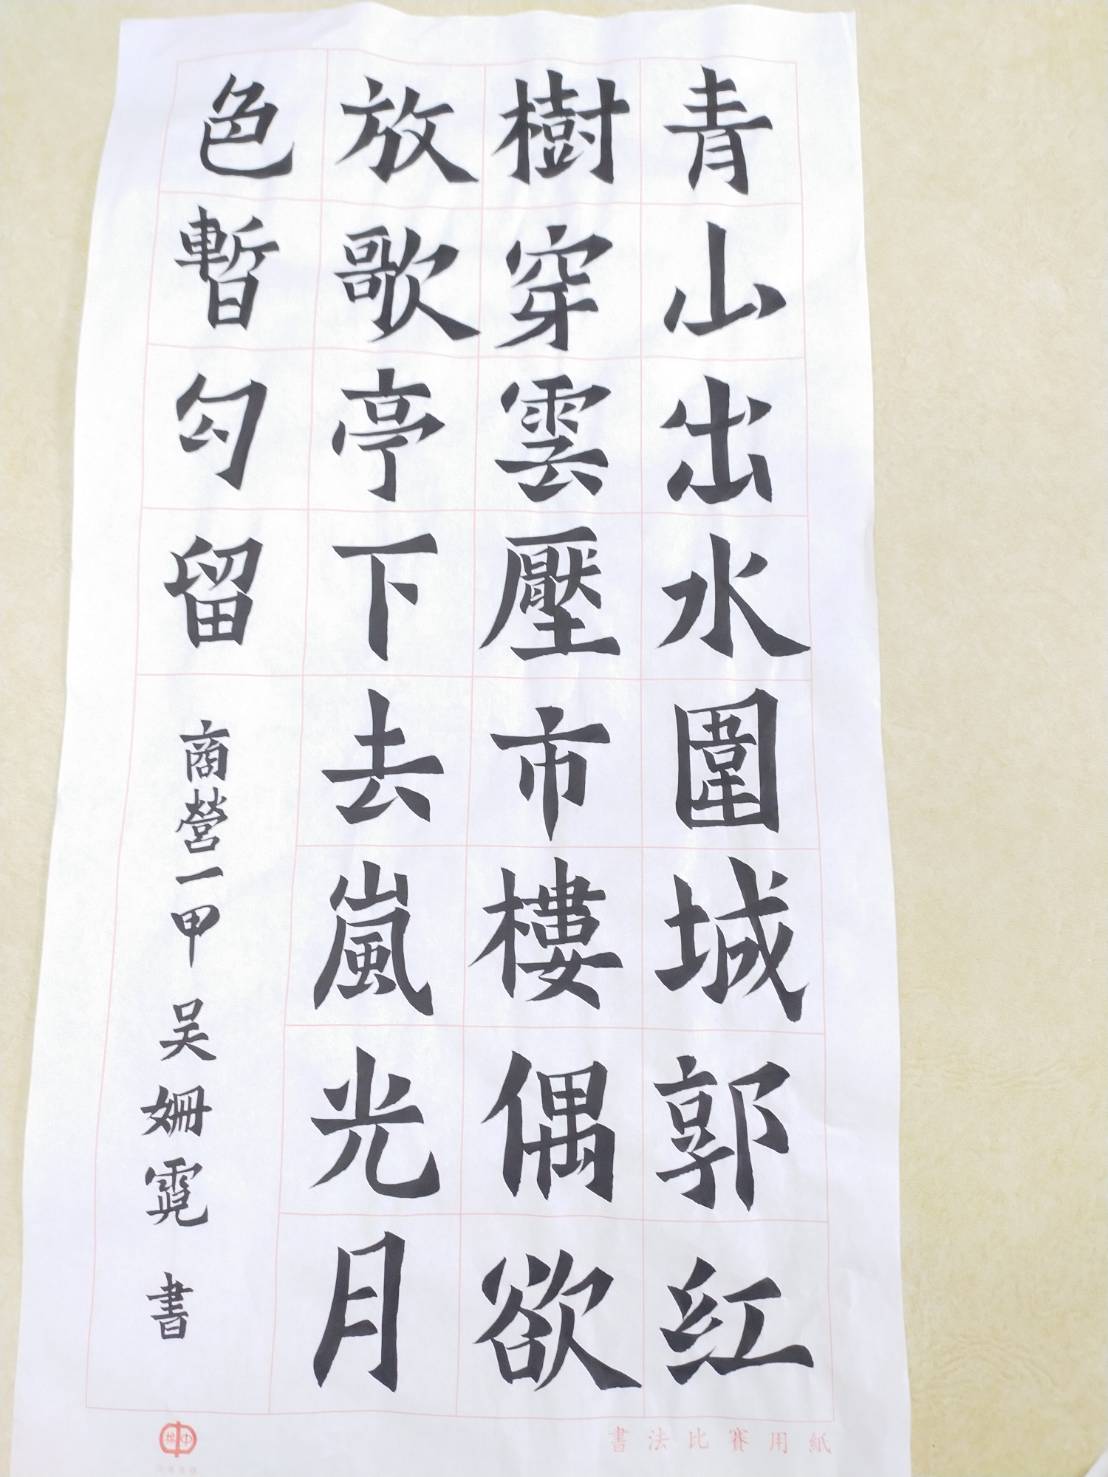 青山出水圍城郭紅
樹穿雲壓市樓偶欲
放歌亭下去嵐光月
色暫勾留
商營一甲 吴姍霓 書
書法比賽用紙